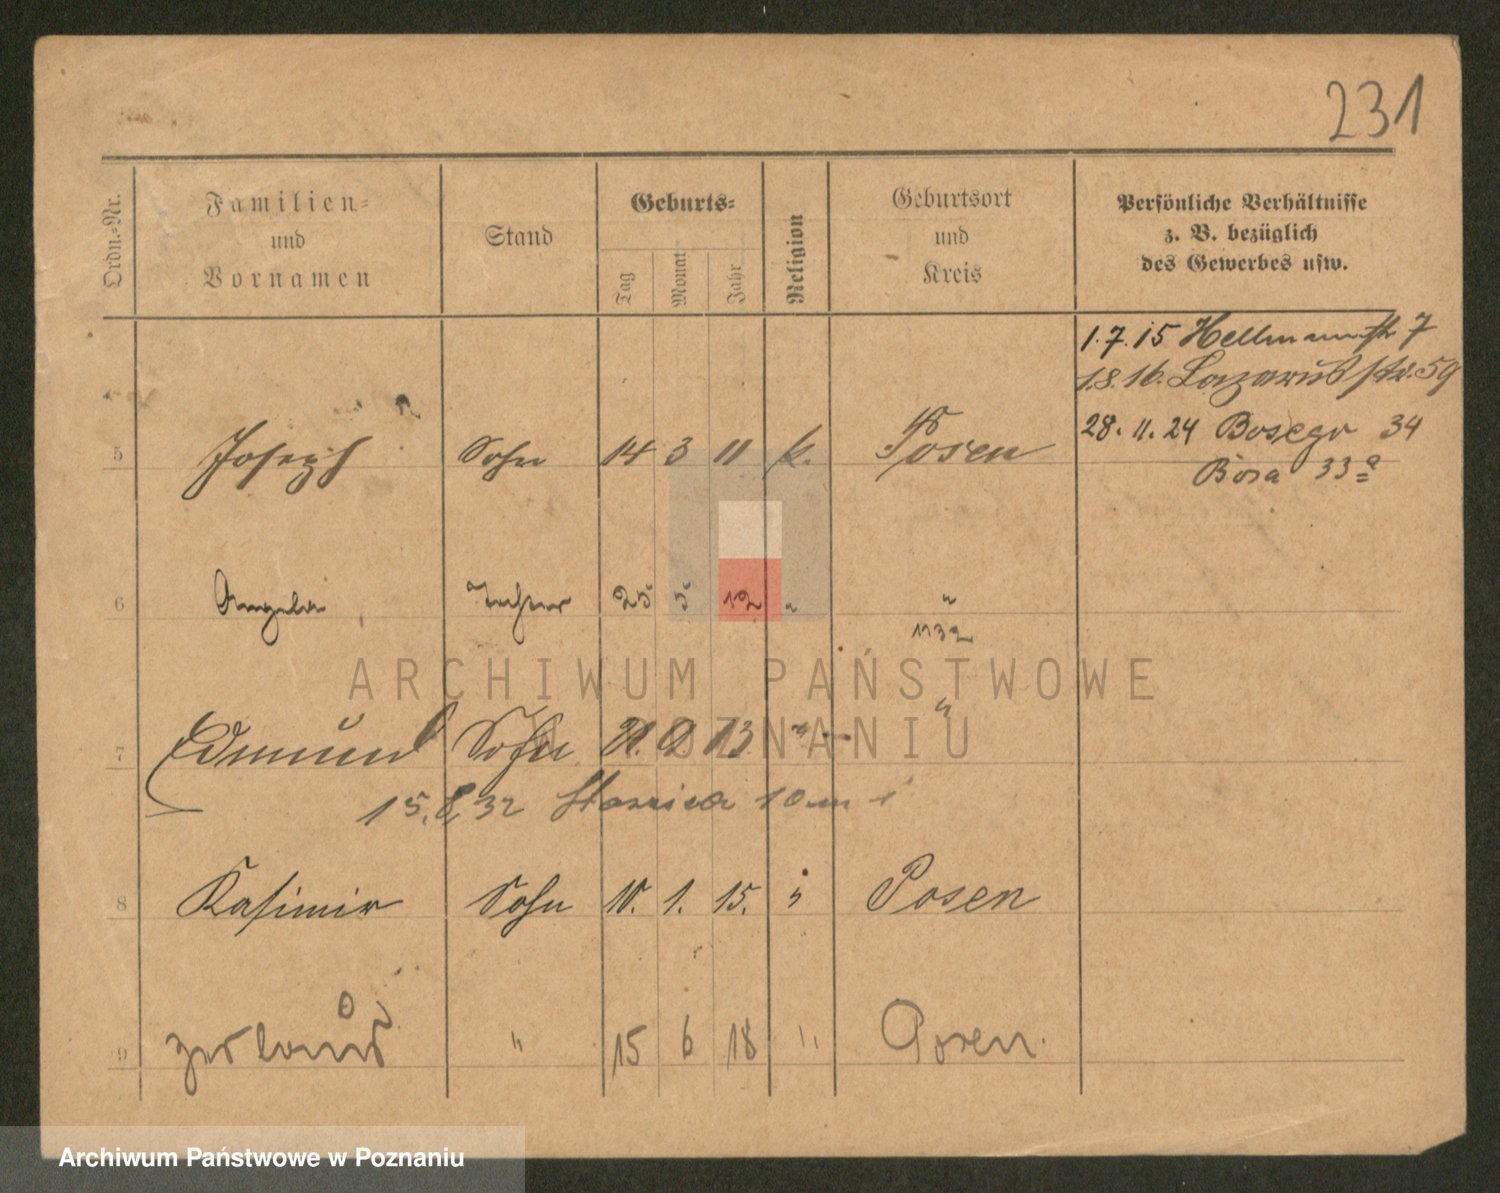 231
Ordn.-Nr.
Familien-
und
Vornamen
Stand
Geburts-
Tag
Monat
Jahr
Religion
Geburtsort
und
Kreis
Persönliche Verhältnisse
z. B. bezüglich
des Gewerbes usw.
1.7.15 Hellmannstr 7
1.8.16. Lazarusstr. 59
28.11.24 Bosego 34
Bosa 33a
5 Joseph Sohn 14 3 11 k. Posen
6 Angela Tochter 25 5 12 " "
1932
7 Edmund Sohn 21. 9 13. " "
15.8.32 10
8 Kasimir Sohn 10. 1. 15. " Posen
9 " 15 6 18 " Posen.
ARCHIWUM PAŃSTWOWE
W POZNANIU
Archiwum Państwowe w Poznaniu